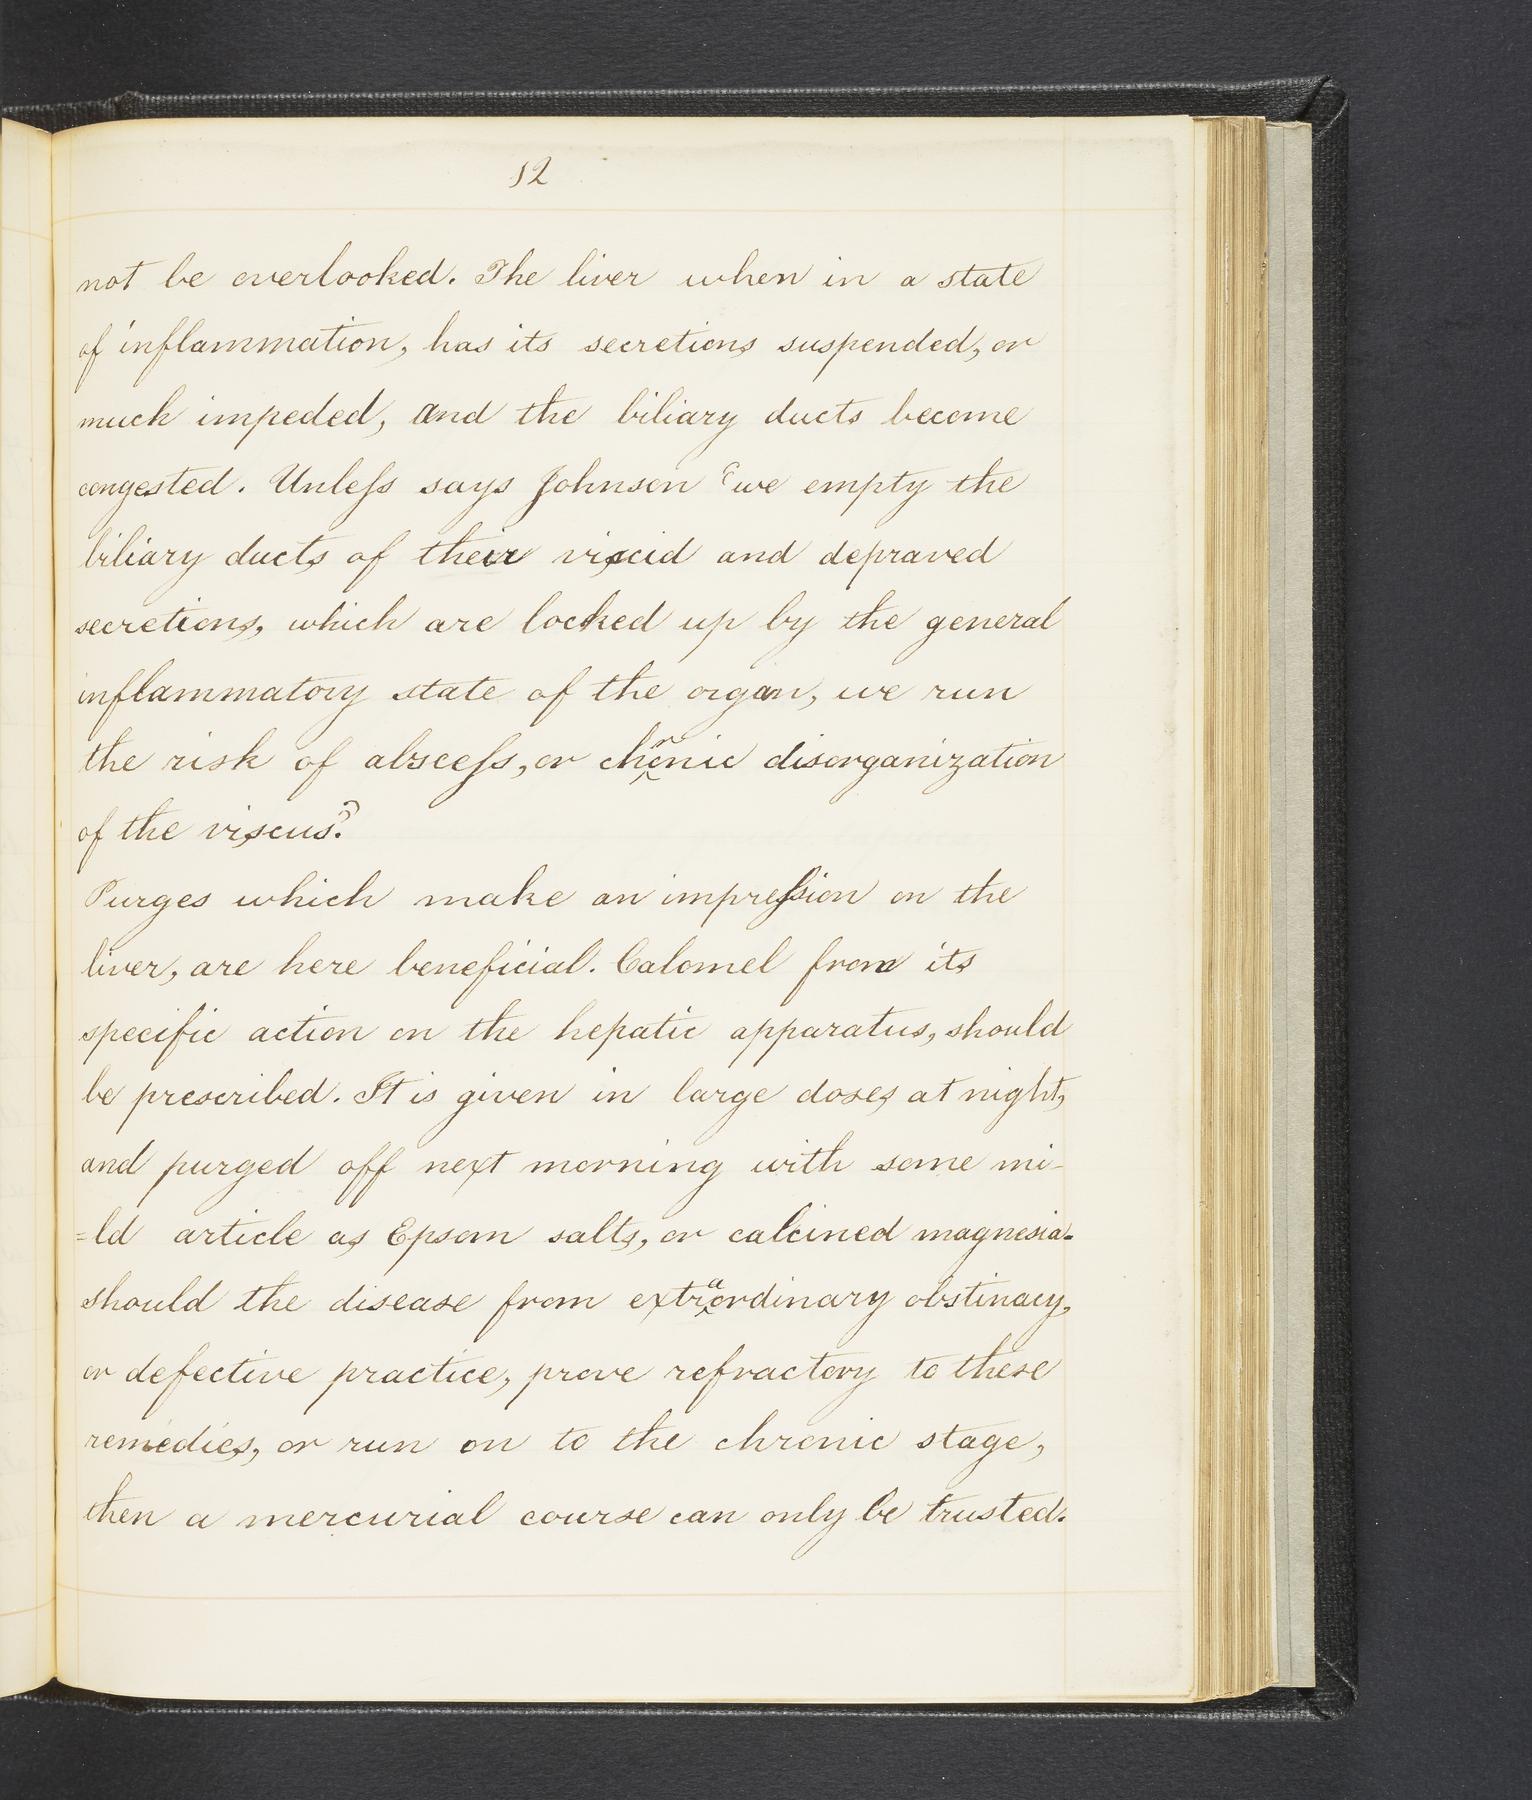 12
not be overlooked. The liver when in a state
of inflammation, has its secretions suspended, or
much impeded, and the biliary ducts become
congested. Unleſs says Johnson "we empty the
biliary ducts of their viscid and depraved
secretions, which are locked up by the general
inflammatory state of the organ, we run
the risk of absceſs, or chronic disorganization
of the viscus."
Purges which make an impreſsion on the
liver, are here beneficial. Calomel from its
specific action on the hepatic apparatus, should
be prescribed. It is given in large doses at night,
and purged off next morning with some mi-
=ld article as Epsom salts, or calcined magnesia.
should the disease from extraordinary obstinacy,
or defective practice, prove refractory to these
remedies, or run on to the chronic stage,
then a mercurial course can only be trusted.